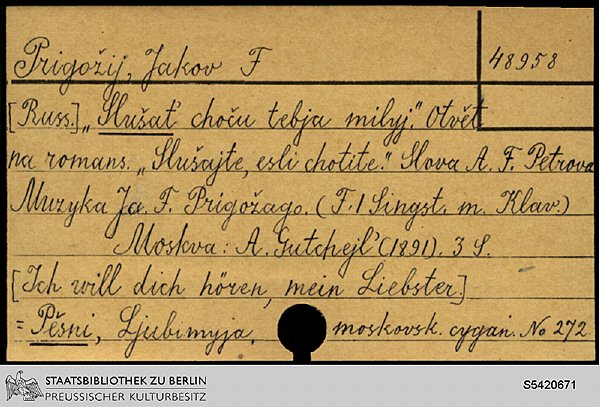 Prigožij, Jakov F
48958
[Russ.] „Slušat' choču tebja milyj." Otvět
na romans. „Slušajte, esli chotite." Slova A. F. Petrova
Muzyka Ja. F. Prigožago. (F. 1 Singst. m. Klav.)
Moskva: A. Gutchejl' (1891). 3 S.
[Ich will dich hören, mein Liebster.]
= Pěsni, Ljubimyja, moskovsk. cygan. No 272
STAATSBIBLIOTHEK ZU BERLIN
PREUSSISCHER KULTURBESITZ
S5420671